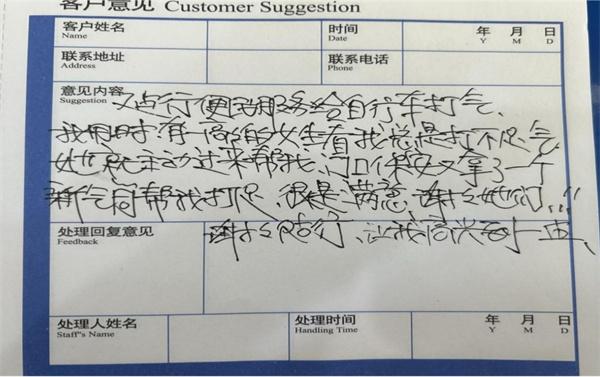 客户意见 Customer Suggestion
客户姓名
Name
时间
Date
年 月 日
Y M D
联系地址
Address
联系电话
Phone
意见内容
Suggestion
行便民服务给自行车打气、
我用时有个的女生看我总是打不足气
她就主动过来帮我、门口保安又拿了一个
新气筒帮我打足、很是满意、谢谢她们,,,!!
谢谢行、让我高兴
处理回复意见
Feedback
处理人姓名
Staff"s Name
处理时间
Handling Time
年 月 日
Y M D